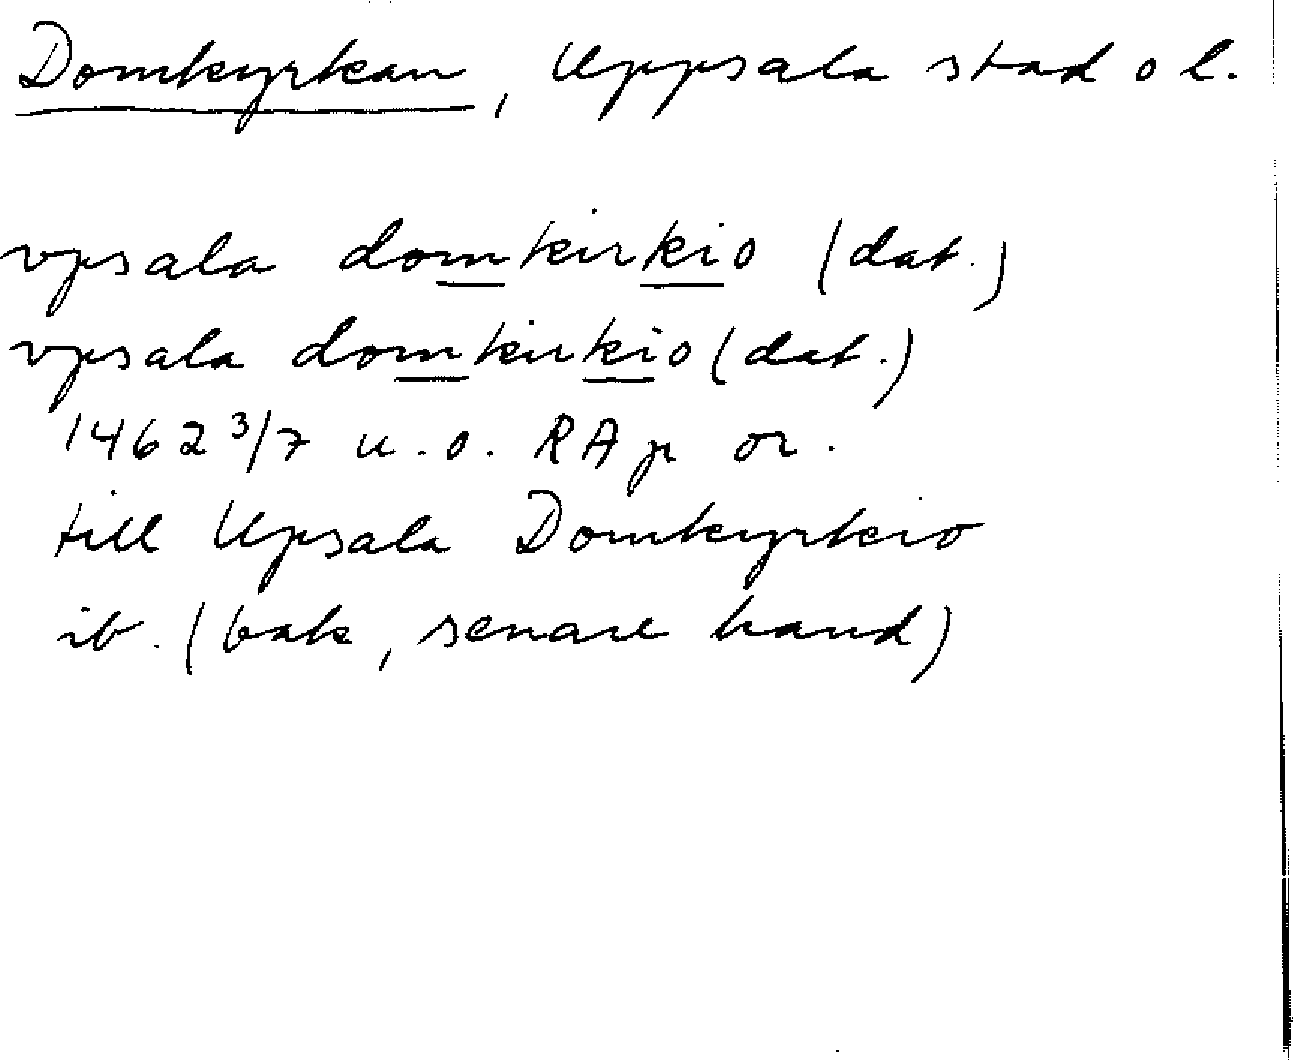 Domkyrkan, Uppsala stad o l.
vpsala domkirkio (dat.)
vpsala domkirkio (dat.)
1462 3/7 u.o. RAp or.
till Upsala Domkyrkio
ib. (bak, senare hand)